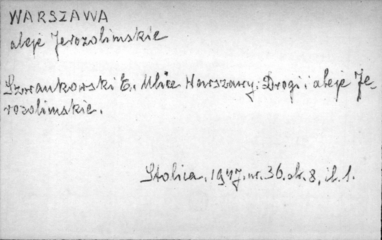 WARSZAWA
aleje Jerozolimskie
Szwankowski E. Ulice Warszawy: Drogi i aleje Je-
rozolimskie.
Stolica. 1947. nr. 36. sk. 8, il. 1.